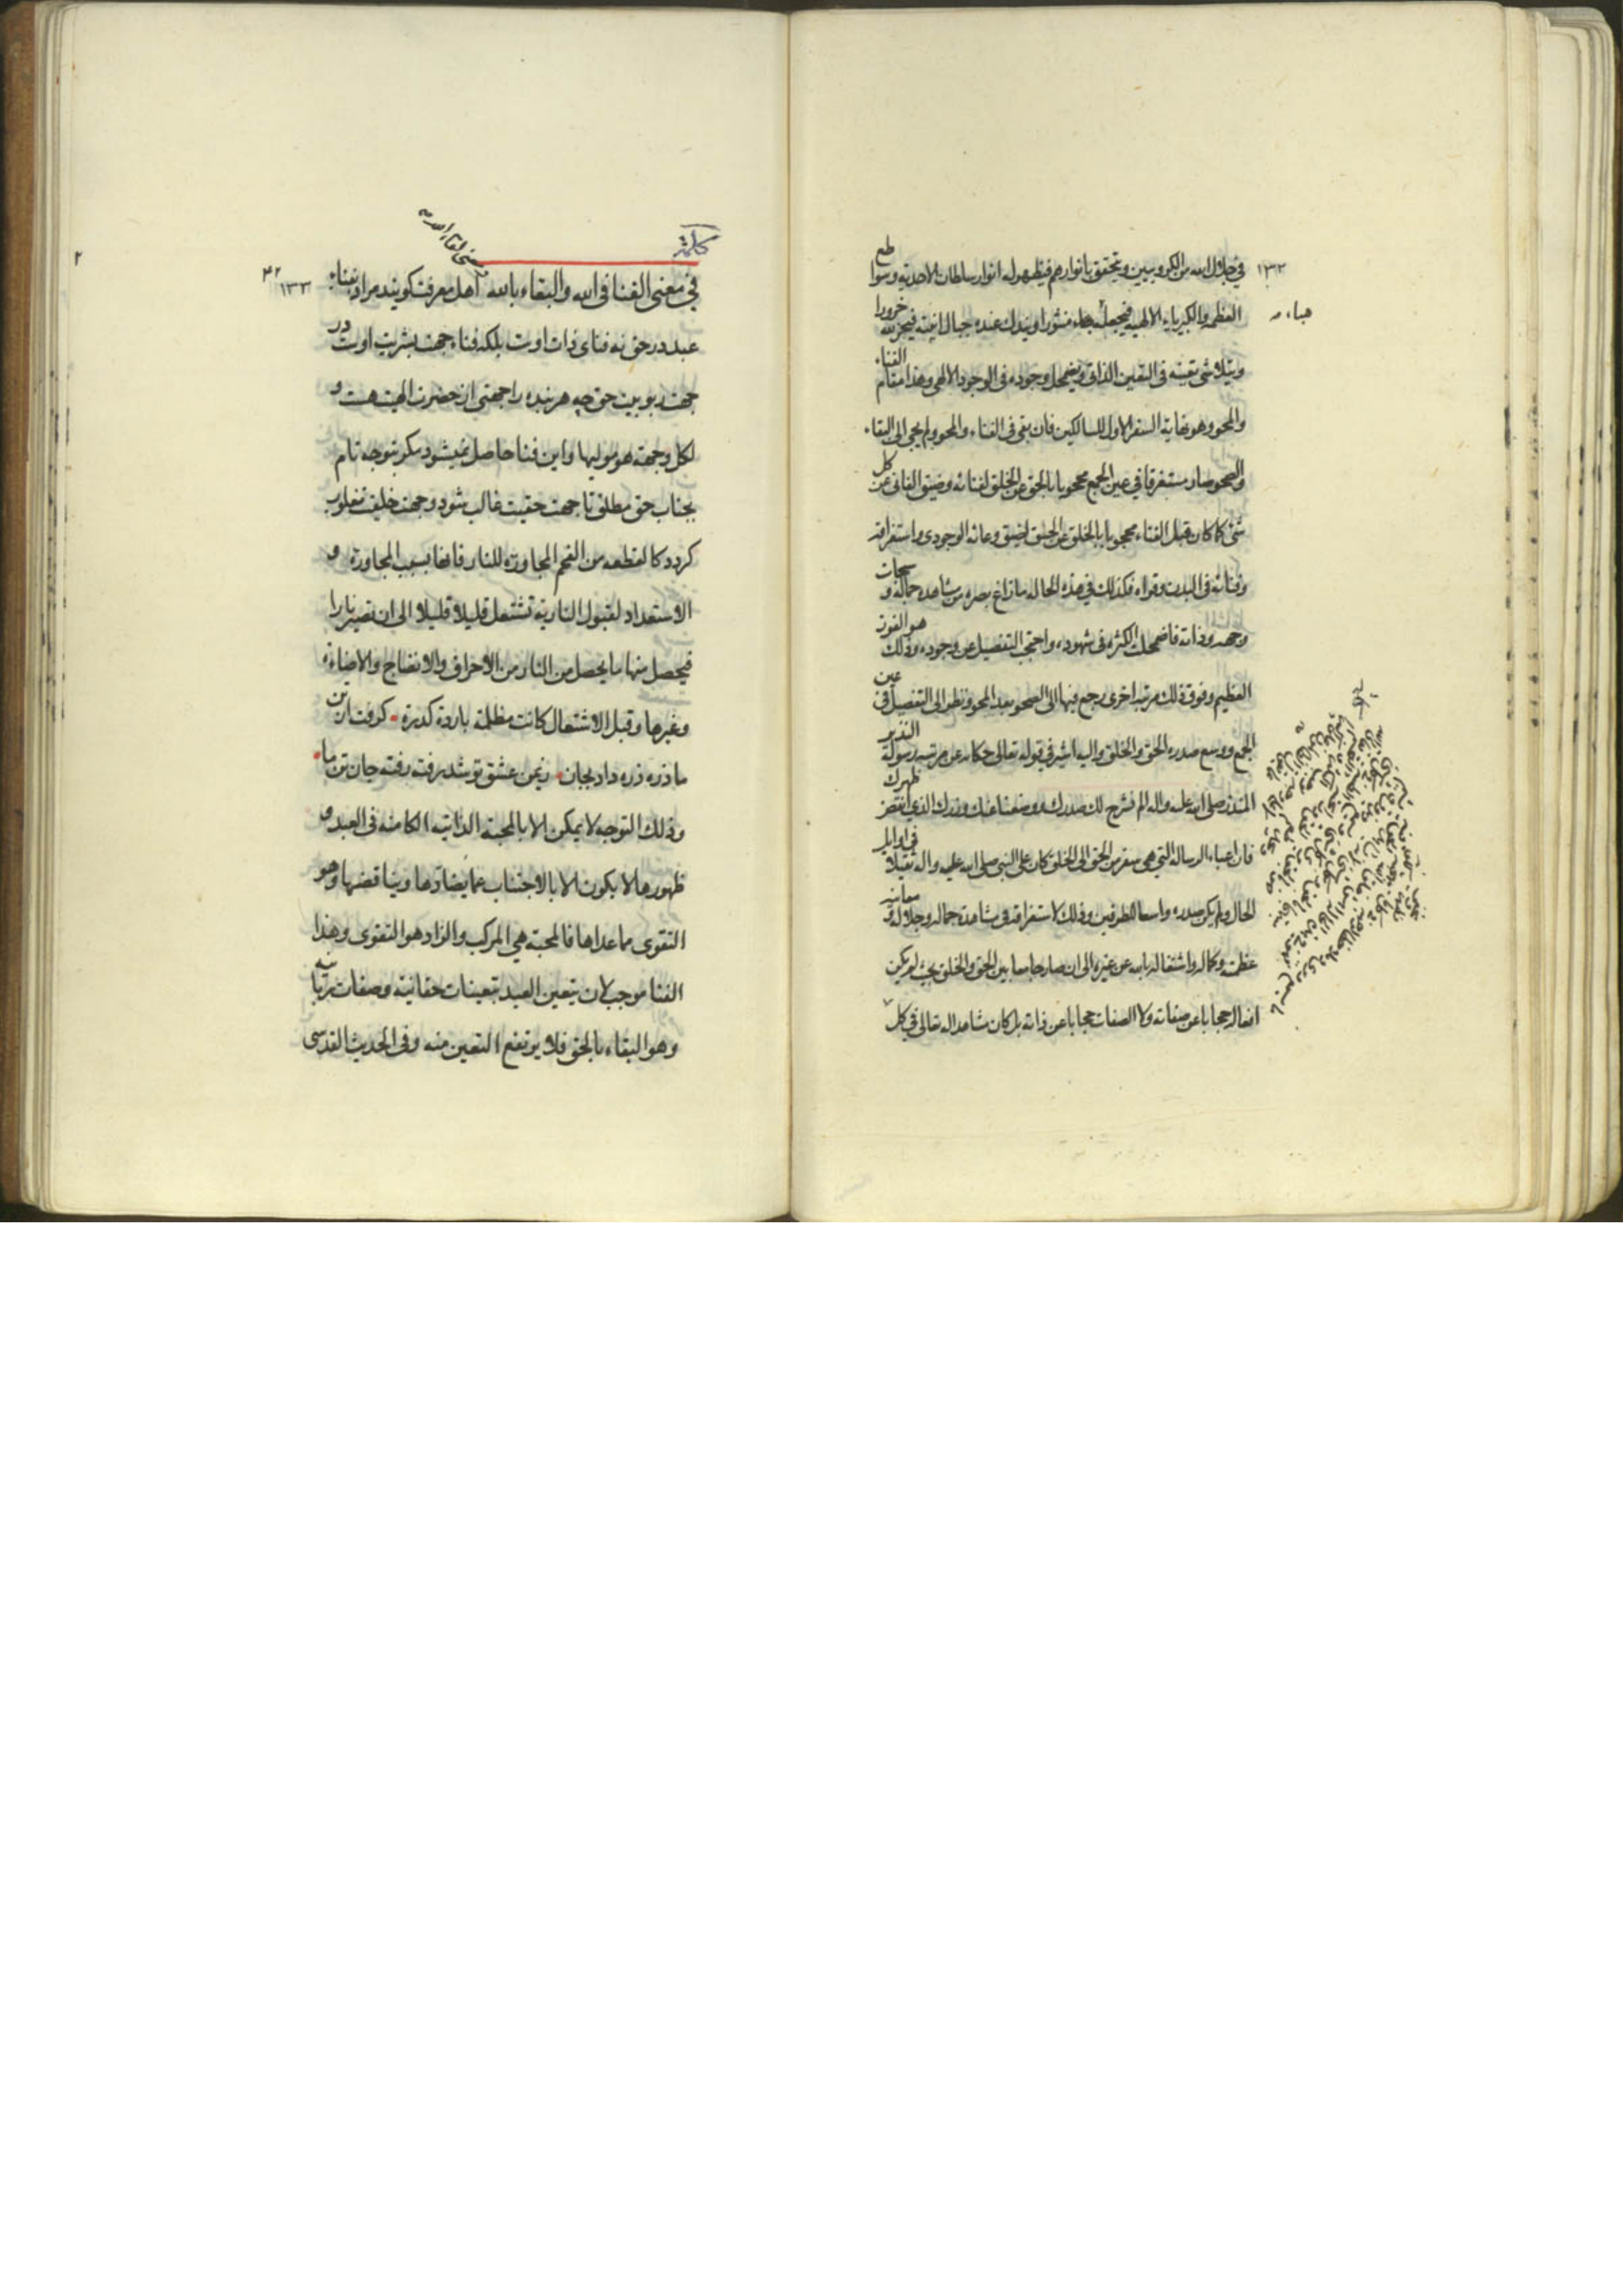 ۱۳۲
في جلال الله من الكروبيين ويتحقق بانوارهم فيظهر له انوار سلطان الاحدية وسواطع
العظمة والكبرياء الالهية فيجعله هباء منثورا ويندك عنده جبال انيته فيخر لله خرورا
هباء
ويتلاشى تعينه في التعين الذاتي ويضمحل وجوده في الوجود الالهي وهذا مقام الفناء
والمحو وهو نهاية السفر الاول للسالكين فان بقى في الفناء والمحو ولم يجئ الى البقاء
والصحو صار مستغرقا في عين الجمع محجوبا بالحق عن الخلق لفنائه وضيق الفاني عن كل
شئ كما كان قبل الفناء محجوبا بالخلق عن الحق لضيق وعائه الوجودى واستغراقه
وفنائه في البدن وقواه فكذلك في هذه الحالة ما زاغ بصره من مشاهدة جماله و سبحات
وجهه وذاته فاضمحلت الكثرة في شهوده واحتجب التفصيل عن وجوده وذلك هو الفوز
العظيم وفوق ذلك مرتبة اخرى رجع فيها الى الصحو بعد المحو ونظر الى التفصيل في عين
الجمع ووسع صدره الحق والخلق واليه اشير في قوله تعالى حكاية عن مرتبة رسوله النذير
المنذر صلى الله عليه واله الم نشرح لك صدرك ووضعنا عنك وزرك الذي انقض ظهرك
فان اعباء الرسالة التي هي سفر من الحق الى الخلق كان على النبي صلى الله عليه واله ثقيلا في اوايل
الحال ولم يكن صدره واسعا للطرفين وذلك لاستغراقه في مشاهدة جماله وجلاله و معاينه
عظمته وكماله واشتغاله بالله عن غيره الى ان صار جامعا بين الحق والخلق بحيث لم يكن
افعاله حجابا عن صفاته ولا الصفات حجابا عن ذاته بل كان شاهدا لله تعالى في كل
۲
كلمة
۴۲
۱۳۳
في معنى الفنا في الله والبقاء بالله اهل معرفت كويند مراد بفناء
عبد در حق نه فناى ذات اوست بلكه فناء جهت بشريت اوست در
جهت ربوبيت حق چه هر بنده را جهتى از حضرت الهيت هست و
لكل وجهة هو موليها واين فنا حاصل نميشود مكر بتوجه تام
بجناب حق مطلق تا جهت حقيت غالب شود وجهت خلقيت مغلوب
كردد كالقطعه من الفحم المجاورة للنار فانها بسبب المجاورة و
الاستعداد لقبول النارية تشتعل قليلا قليلا الى ان تصير نارا
فيحصل منها ما يحصل من النار من الاحراق والانضاج والاضاءة
وغيرها وقبل الاشتعال كانت مظلمة باردة كدرة كرفت از تن
ما ذره ذره داد بجان زيمن عشق تو شد رفته رفته جان تن ما
وذلك التوجه لا يمكن الا بالمحبة الذاتية الكامنة في العبد و
ظهورها لا يكون الا بالاجتناب عما يضادها ويناقضها وهو
التقوى مما عداها فالمحبة هي المركب والزاد هو التقوى وهذا
الفنا موجب لان يتعين العبد بتعينات حقانية وصفات ربانيه
وهو البقاء بالحق فلا يرتفع التعين منه وفي الحديث القدسى